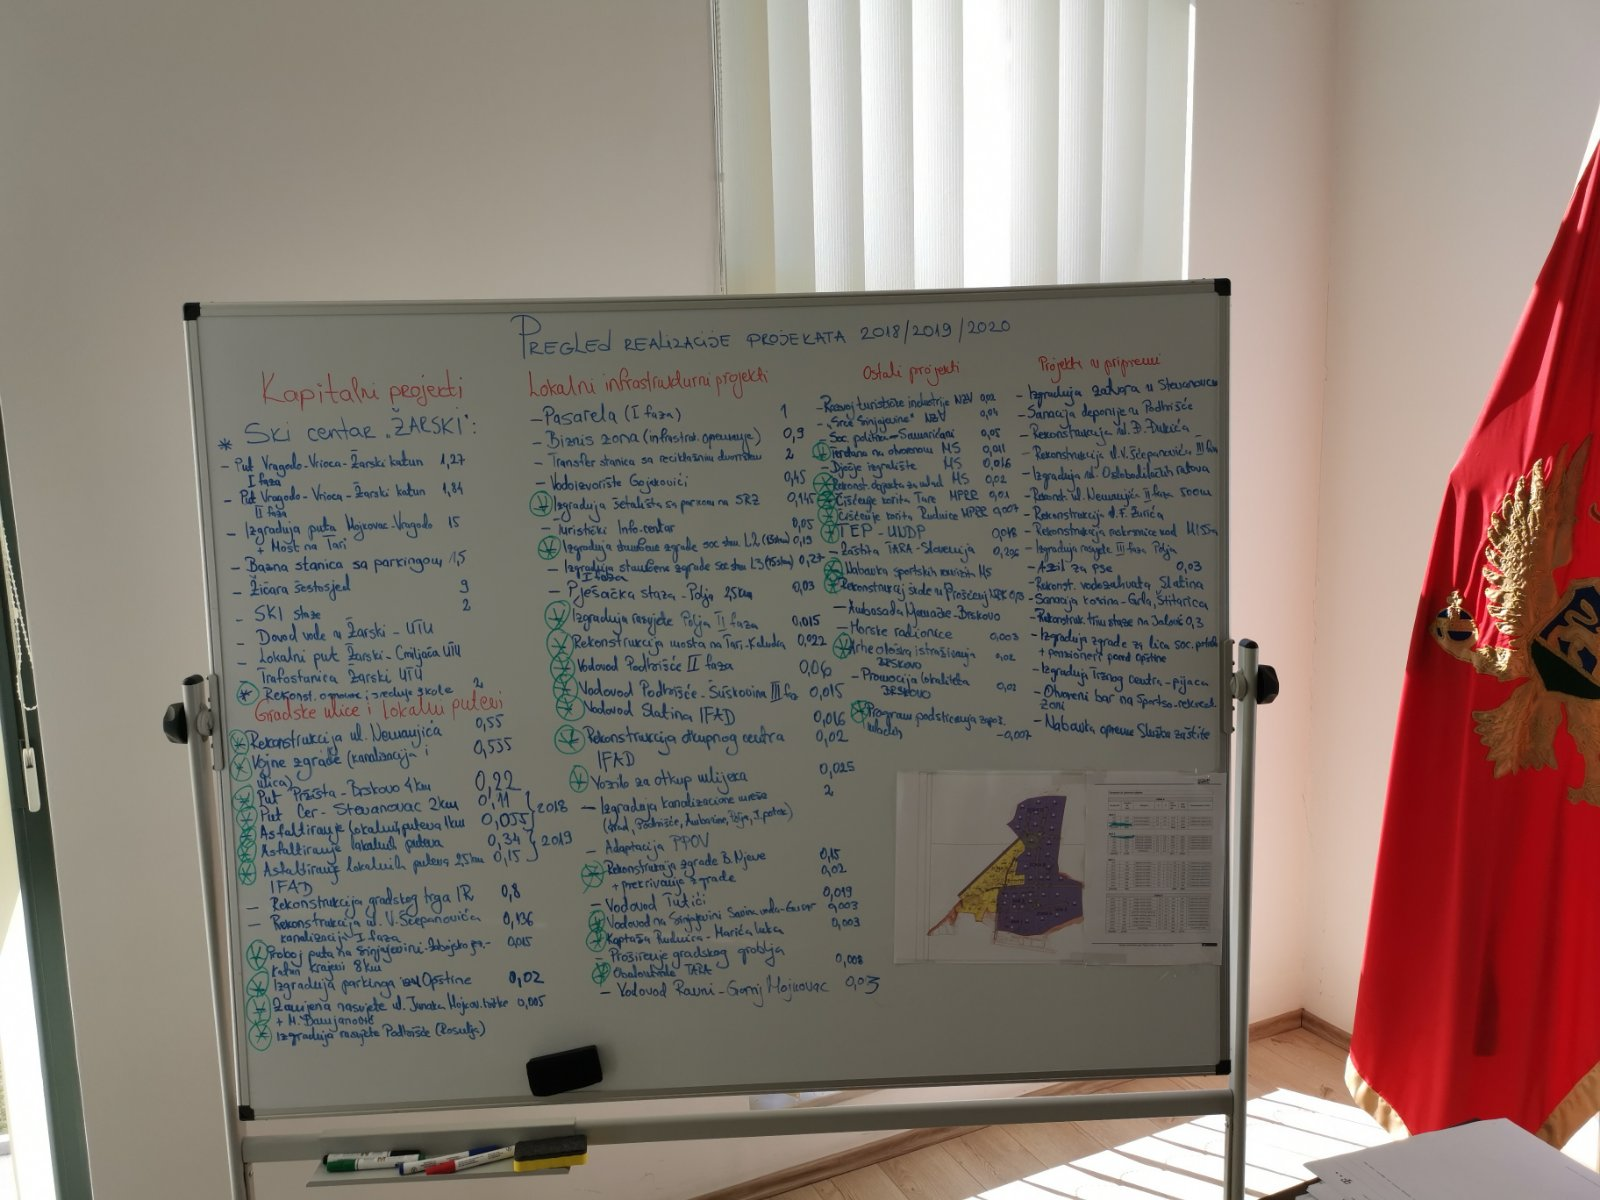 PREGLED REALIZACIJE PROJEKATA 2018/2019/2020
Kapitalni projekti
* Ski centar "ŽARSKI":
- Put Vragodo-Vrioca-Žarski katun 1,27
I faza
- Put Vragodo-Vrioca-Žarski katun 1,84
II faza
- Izgradnja puta Mojkovac-Vragodo 15
+ Most na Tari
- Bazna stanica sa parkingom 1,5
- Žičara šestosjed 9
- SKI staze 2
- Dovod vode u Žarski - UTU
- Lokalni put Žarski-Cmiljača UTU
- Trafostanica Žarski UTU
* Rekonst. osnovne i srednje škole 2
Gradske ulice i Lokalni putevi
* Rekonstrukcija ul. Nemanjića 0,55
* Vojne zgrade (kanalizacija i 0,535
ulica)
* Put Pržišta-Brskovo 4km 0,22
* Put Cer-Stevanovac 2km 0,11
* Asfaltiranje lokalnih puteva 1km 0,055 } 2018
* Asfaltiranje lokalnih puteva 0,34 } 2019
* Asfaltiranje lokalnih puteva 2,5km 0,15
IFAD
- Rekonstrukcija gradskog trga IR 0,8
- Rekonstrukcija ul. V. Šćepanovića 0,136
kanalizacija I faza
* Proboj puta na Sinjajevini-Zabojsko 0,015
katun Krajevi 8km
* Izgradnja parkinga Opštine 0,02
* Zamjena rasvjete ul. Junaka Mojkov. bitke 0,005
+ M. Damjanović
* Izgradnja rasvjete Podbišće (Rosulja)
Lokalni infrastrukturni projekti
- Pasarela (I faza) 1
- Biznis zona (infrastrukt. opremanje) 0,9
- Transfer stanica sa reciklažnim dvorištem 2
- Vodoizvorište Gojakovići 0,45
* Izgradnja šetališta sa parkom na SRZ 0,145
- Turistički Info centar 0,05
* Izgradnja stambene zgrade soc. stan. L2 (13stan) 0,19
- Izgradnja stambene zgrade soc. stan L3 (15stan) 0,27
I faza
- Pješačka staza - Polja 2,5km 0,03
* Izgradnja rasvjete Polja II faza 0,015
* Rekonstrukcija mosta na Tari-Kaludra 0,022
* Vodovod Podbišće II faza 0,06
* Vodovod Podbišće-Šuškovina III faz 0,015
* Vodovod Slatina IFAD 0,016
* Rekonstrukcija otkupnog centra 0,02
IFAD
* Vozilo za otkup mlijeka 0,025
- Izgradnja kanalizacione mreže 2
(Grad, Podbišće, Ambarine, Polja, J. potok)
- Adaptacija PPOV
* Rekonstrukcija zgrade B. Njeve 0,15
+ prekrivanje zgrade 0,02
- Vodovod Tutići 0,019
* Vodovod na Sinjajevini Savina voda-Gusar 0,003
* Kaptaža Rudnica-Marića luka 0,003
- Proširenje gradskog groblja
* Obaloutvrde TARA 0,008
- Vodovod Ravni-Gornji Mojkovac 0,03
Ostali projekti
- Razvoj turističke industrije NZV 0,02
- "Srce Sinjajevine" NZV 0,04
- Soc. politika - Samarićani 0,05
* Teretana na otvorenom MS 0,011
- Dječje igralište MS 0,016
* Rekonst. objekta za mlad MS 0,02
* Čišćenje korita Tare MPRR 0,01
* Čišćenje korita Rudnice MPRR 0,007
* TEP - UNDP 0,018
- Zaštita TARA-Slovenija 0,296
* Nabavka sportskih rekvizita MS
* Rekonstrukcij škole u Prošćenju
- Ambasada Njemačke-Brskovo
- Morske radionice 0,003
* Arheološka istraživanja 0,02
BRSKOVO
- Promocija lokaliteta 0,02
BRSKOVO
* Program podsticanja zapoš.
mladih -0,007
Projekti u pripremi
- Izgradnja zatvora u Stevanovcu
- Sanacija deponije u Podbišće
- Rekonstrukcija ul. Đ. Đukića
- Rekonstrukcija ul. V. Šćepanovića III faza
- Izgradnja ul. Oslobodilačkih ratova
- Rekonst. ul. Nemanjića II faza 500m
- Rekonstrukcija ul. F. Žurića
- Rekonstrukcija raskrsnice kod M155m
- Izgradnja rasvjete III faza Polja
- Azil za pse 0,03
- Rekonst. vodozahvata Slatina
- Sanacija kosina - Grla, Štitarica
- Rekonstruk. trim staze na Jalovištu 0,3
- Izgradnja zgrade za lica soc. potreb.
+ penzioneri pored opštine
- Izgradnja Tržnog centra - pijaca
- Otvoreni bar na Sportsko-rekreat.
zoni
- Nabavka opreme Službe zaštite